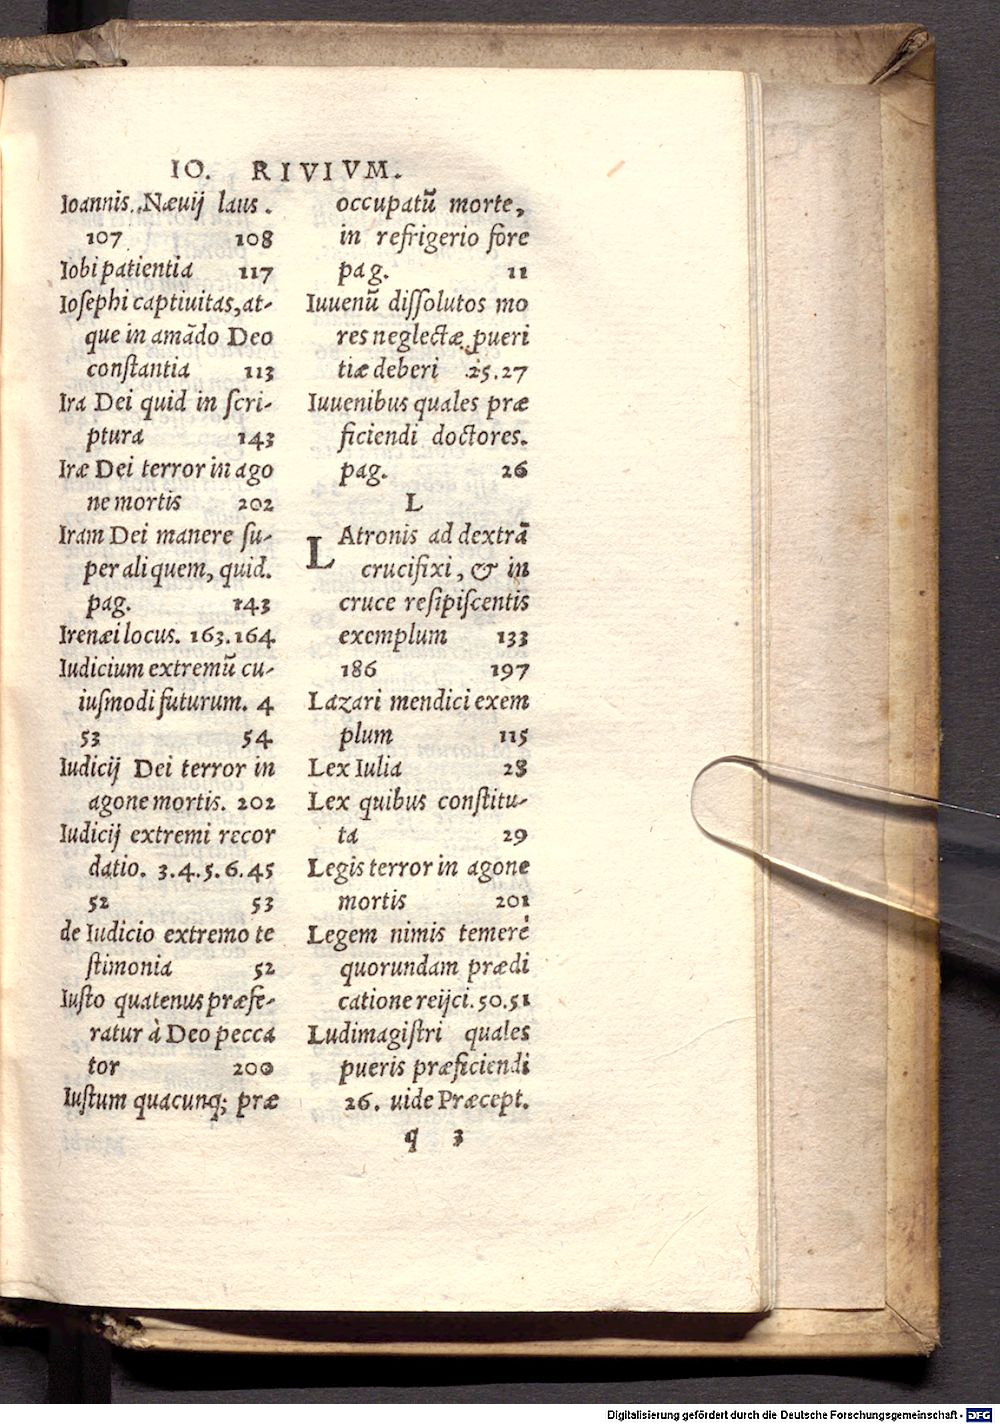 IO. RIVIVM.
Ioannis Næuij laus.
107 108
Iobi patientia 117
Iosephi captiuitas, at-
que in amãdo Deo
constantia 113
Ira Dei quid in scri-
ptura 143
Iræ Dei terror in ago
ne mortis 202
Iram Dei manere su-
per aliquem, quid.
pag. 143
Irenæi locus. 163.164
Iudicium extremũ cu-
iusmodi futurum. 4
53 54
Iudicij Dei terror in
agone mortis. 202
Iudicij extremi recor
datio. 3.4.5.6.45
52 53
de Iudicio extremo te
stimonia 52
Iusto quatenus præfe-
ratur à Deo pecca
tor 200
Iustum quacunq; præ
occupatũ morte,
in refrigerio fore
pag. 11
Iuuenũ dissolutos mo
res neglectæ pueri
tiæ deberi 25.27
Iuuenibus quales præ
ficiendi doctores.
pag. 26
L
LAtronis ad dextrã
crucifixi, & in
cruce resipiscentis
exemplum 133
186 197
Lazari mendici exem
plum 115
Lex Iulia 28
Lex quibus constitu-
ta 29
Legis terror in agone
mortis 201
Legem nimis temerè
quorundam prædi
catione reijci. 50.51
Ludimagistri quales
pueris præficiendi
26. uide Præcept.
q 3
Digitalisierung gefördert durch die Deutsche Forschungsgemeinschaft - DFG